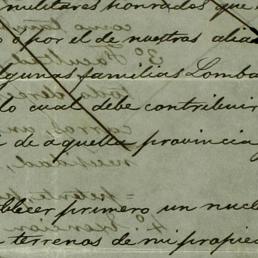 militares honrados que
o por el de nuestras alia
algunas familias Lomba
lo cual debe contribuir
de aquella provincia
blecer primero un nucl
terrenos de mi propied